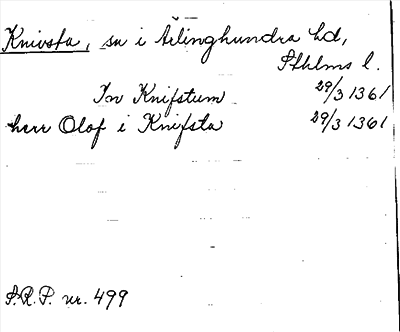 Knivsta, sn i Ärlinghundra hd,
Sthlms l.
In Knifstum 29/3 1361
herr Olof i Knifsta 29/3 1361
S.R.P. nr. 499